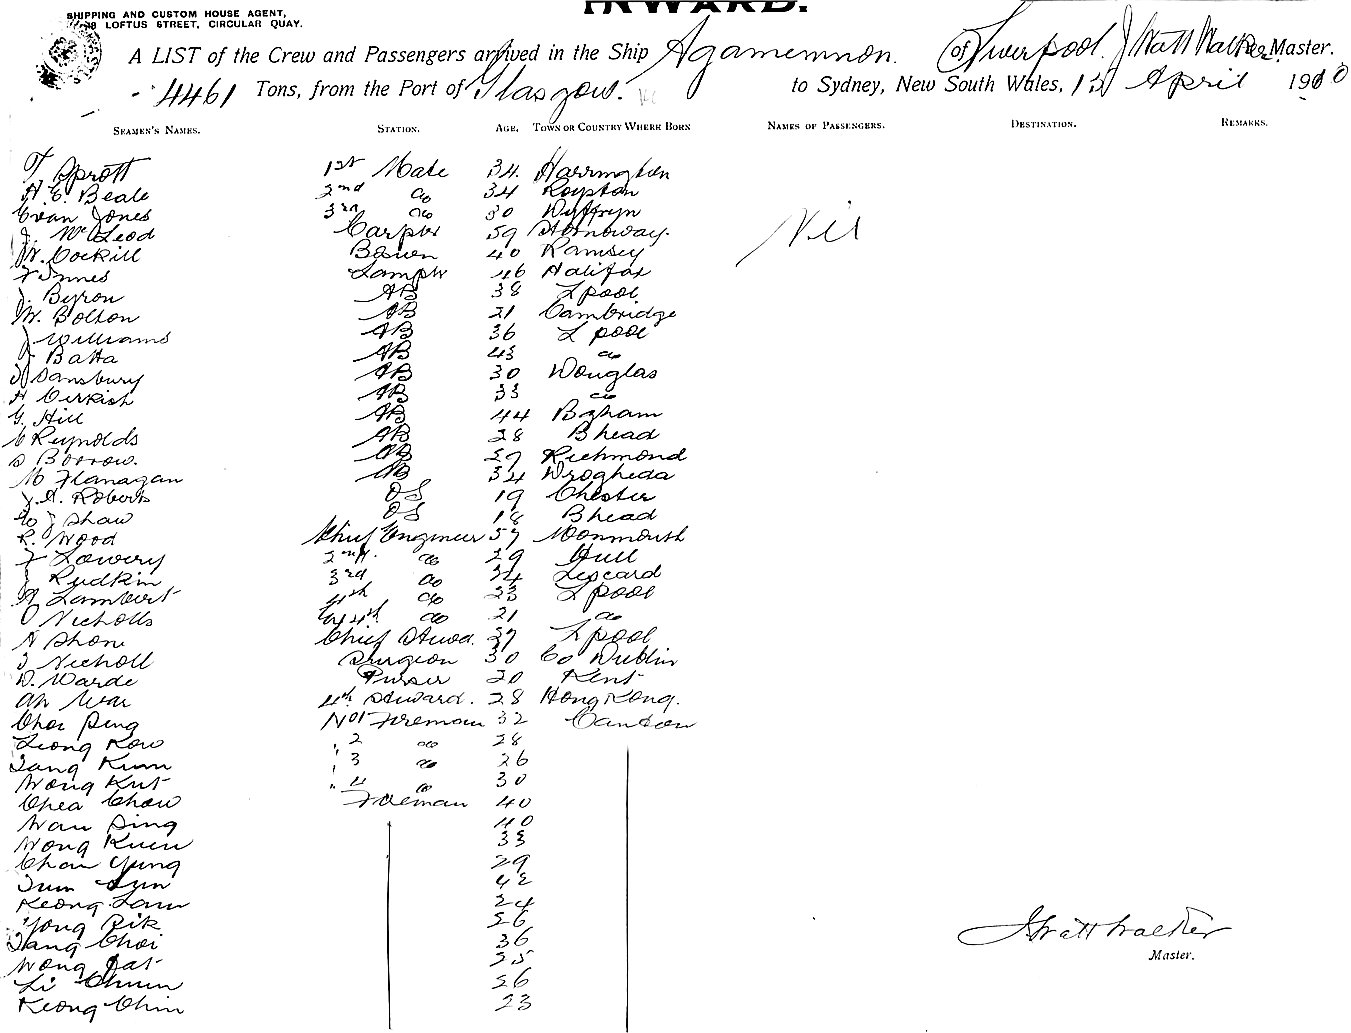 INWARD.
SHIPPING AND CUSTOM HOUSE AGENT,
LOFTUS STREET, CIRCULAR QUAY.
A LIST of the Crew and Passengers arrived in the Ship Agamemnon. of Liverpool. J Watt Walker Master.
4461 Tons, from the Port of Glasgow. to Sydney, New South Wales, April 1910
SEAMEN'S NAMES. STATION. AGE. TOWN OR COUNTRY WHERE BORN NAMES OF PASSENGERS. DESTINATION. REMARKS.
T Sprott 1st Mate 34 Harrington
H. E. Beale 2nd do 34 Royston
Evan Jones 3rd do 30 Dyffryn
J. McLeod Carptr 59 Stornoway.
W. Cockill Bosun 40 Ramsey
Nil
F Innes Lamptr 46 Halifax
J. Byron AB 38 Lpool
W. Bolton AB 21 Cambridge
J Williams AB 36 Lpool
J Batta AB 43 do
Sansbury AB 30 Douglas
H Cirkish AB 33 do
G. Hill AB 44 Bgham
C Reynolds AB 28 Bhead
S Borrow. AB Richmond
M Flanagan AB 34 Drogheda
J. A. Roberts OS 19 Chester
J Shaw OS 18 Bhead
R. Wood Chief Engineer 57 Monmouth
F Lowery 2nd. do 29 Hull
J Rudkin 3rd do 34 Liscard
A Lambert 4th do 33 Lpool
O Nicholls 4th do 21 do
Shone Chief Stewd. Lpool
J Nicholl Surgeon 30 Co Dublin
D. Warde Purser 20 Kent
Ah Wai 4th Steward. 28 Hong Kong.
Choi Ping No1 Fireman 32 Canton
Leong Kow " 2 do 28
Tang Kum " 3 do 26
Wong Kut " 4 do 30
Chea Chow Fireman 40
Wan Sing 40
Wong Kuen 33
Chan Yung 29
Sum Sun 42
Keong Lam 24
Yong Bik 26
Tang Choi 36
Wong Fat 35
Li Chun 26
Keong Chin 23
J Watt Walker
Master.